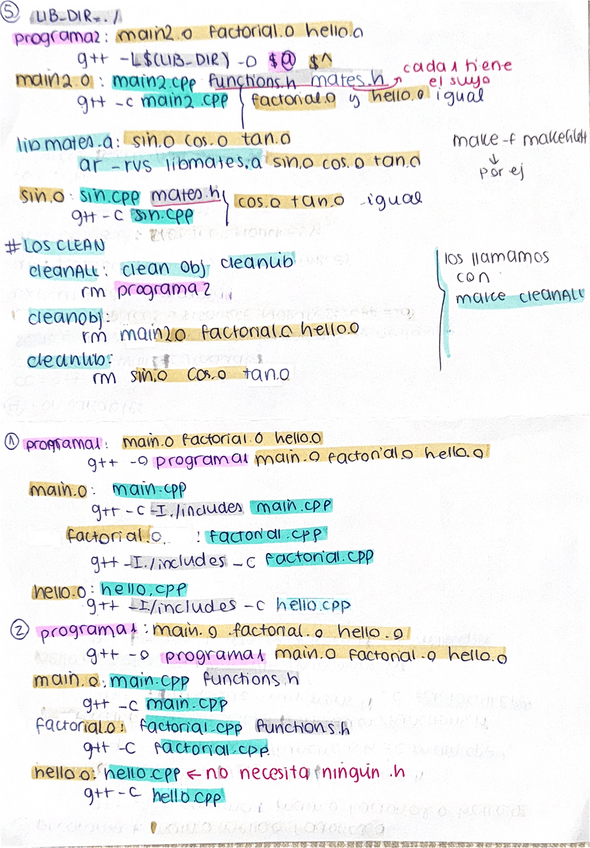 ⑤ LIB_DIR=./
programa2: main2.o factorial.o hello.o
g++ -L$(LIB_DIR) -o $@ $^
main2.o: main2.cpp functions.h mates.h → cada 1 tiene el suyo
g++ -c main2.cpp } factorial.o y hello.o igual
libmates.a: sin.o cos.o tan.o
ar -rvs libmates.a sin.o cos.o tan.o
make -f makefile
↓
por ej
sin.o: sin.cpp mates.h } cos.o tan.o igual
g++ -c sin.cpp
# LOS CLEAN
cleanALL: clean obj cleanlib
rm programa2
cleanobj:
rm main2.o factorial.o hello.o
cleanlib:
rm sin.o cos.o tan.o
los llamamos
con
make cleanALL
① programa1: main.o factorial.o hello.o
g++ -o programa1 main.o factorial.o hello.o
main.o: main.cpp
g++ -c -I./includes main.cpp
factorial.o : factorial.cpp
g++ -I./includes -c factorial.cpp
hello.o: hello.cpp
g++ -I/includes -c hello.cpp
② programa1: main.o factorial.o hello.o
g++ -o programa1 main.o factorial.o hello.o
main.o: main.cpp functions.h
g++ -c main.cpp
factorial.o: factorial.cpp functions.h
g++ -c factorial.cpp
hello.o: hello.cpp ← no necesita ningún .h
g++ -c hello.cpp